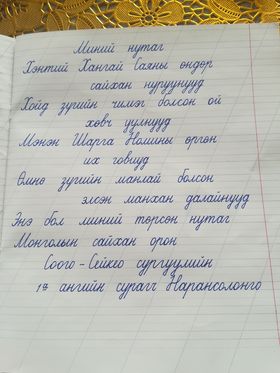 Миний нутаг
Хэнтий Хангай Саяны өндөр
сайхан нуруунууд
Хойд зүгийн чимэг болсон ой
хөвч уулнууд
Мэнэн Шарга Номины өргөн
их говиуд
Өмнө зүгийн манлай болсон
элсэн манхан далайнууд
Энэ бол миний төрсөн нутаг
Монголын сайхан орон
Соого-Сейкео сургуулийн
1в ангийн сурагч Нарансолонго